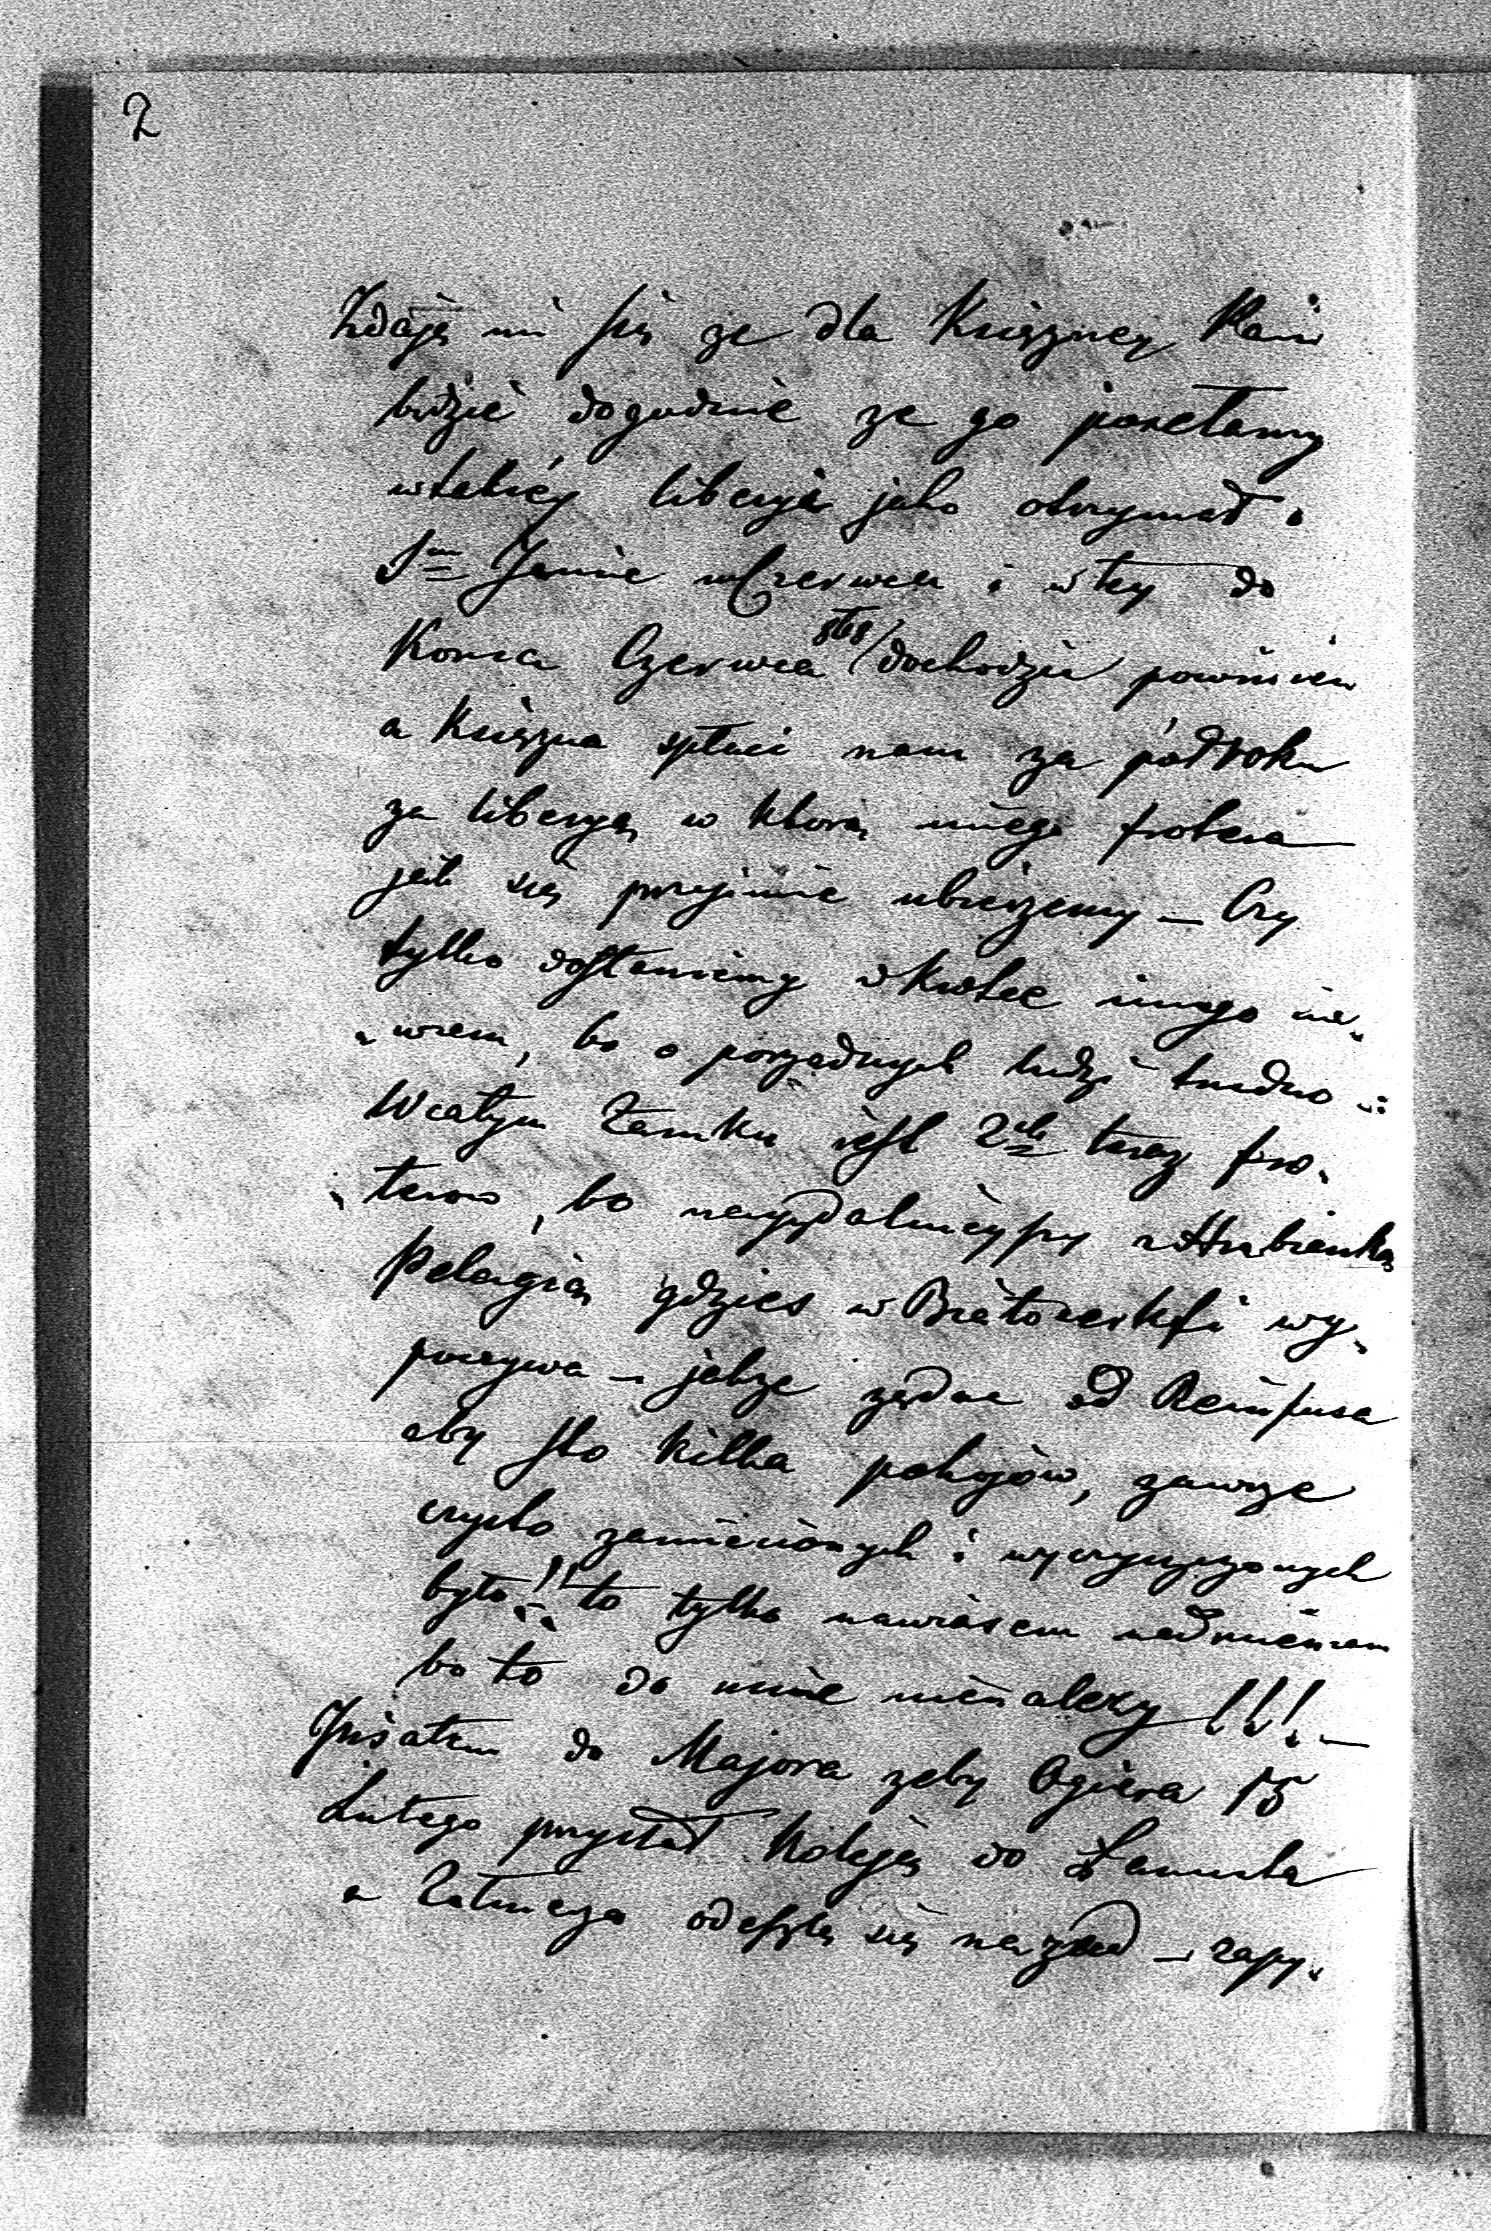 2
Zdaje mi się ze dla Księzney Pani
bedzie dogodnie ze go posełamy
w takiey liberyi jako otrzymał o
Sm Janie w Czerwcu i w tey do
Konca Czerwca 868/ dochodzić powinien
a Księzna spłaci nam za pół roku
za liberyą w ktorą innego frotera
jak się przyjmie ubierzemy – Czy
tylko dostaniemy wkrotce innego nie
wiem, bo o porządnych ludzi trudno
W całym Zamku jest 2ch teraz fro
terow, bo naypodlejszy z Hrabianką
Pelagią gdzies w Białocerkfi wy
poczywa – jakze ządac od Rempusa
aby sto kilka pokojów, zawsze
czysto zamiecionych i wyczyszczonych
było!! to tylko nawiasem nadmieniam
bo to do mnie nienalezy!!! –
Pisałem do Majora zeby Ogiera 15
Lutego przysłał Koleją do Łancuta
a Zatnego odeszlę się nazad – zapy